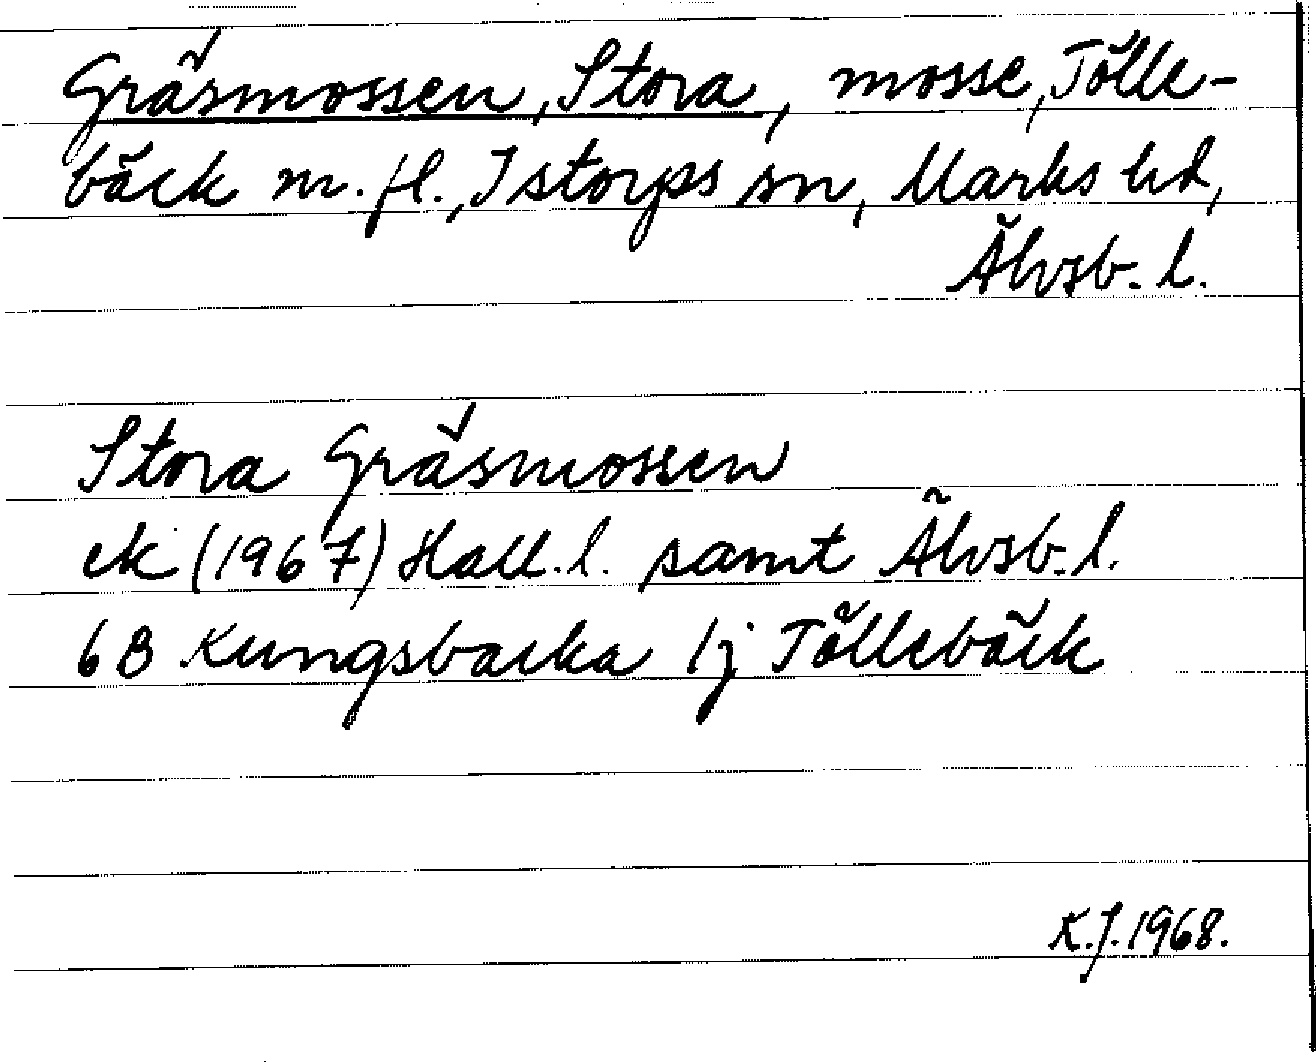 Gräsmossen, Stora, mosse, Tölle-
bäck m. fl., Istorps sn, Marks hd,
Älvsb. l.
Stora Gräsmossen
ek (1967) Hall. l. samt Älvsb. l.
6B Kungsbacka 1j Töllebäck
K.J. 1968.